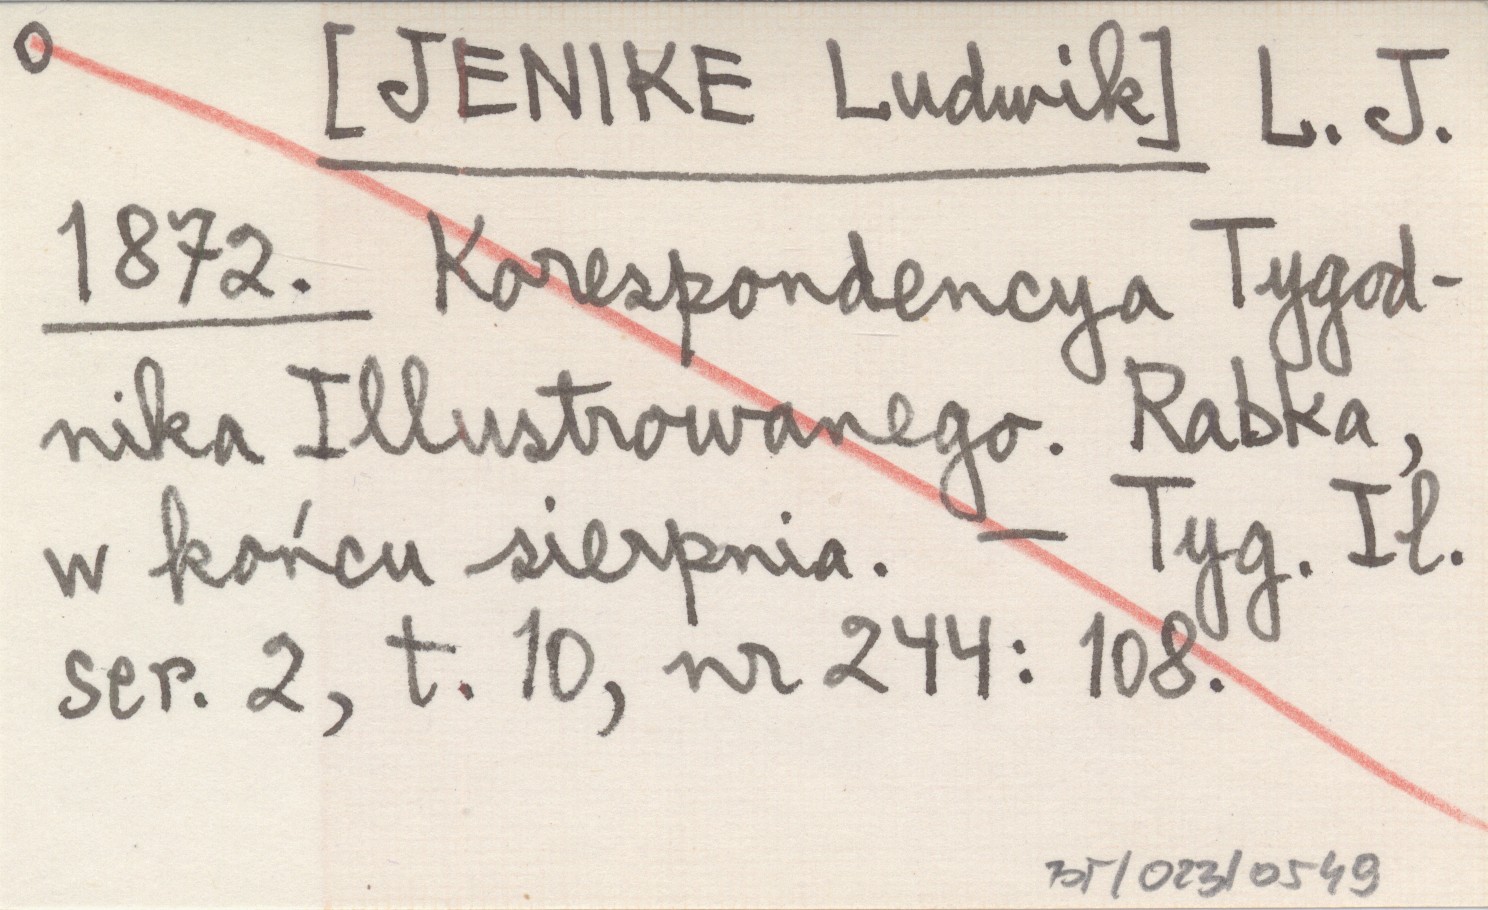 [JENIKE Ludwik] L. J.
1872. Korespondencya Tygod-
nika Illustrowanego. Rabka,
w końcu sierpnia. — Tyg. Il.
ser. 2, t. 10, nr 244: 108.
/023/0549